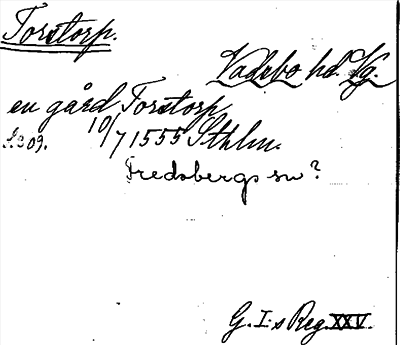 Torstorp.
Vadsbo hd. Vg.
en gård Torstorp
S. 309. 10/7 1555 Sthlm.
Fredsbergs sn?
G. I:s Reg. XXV.